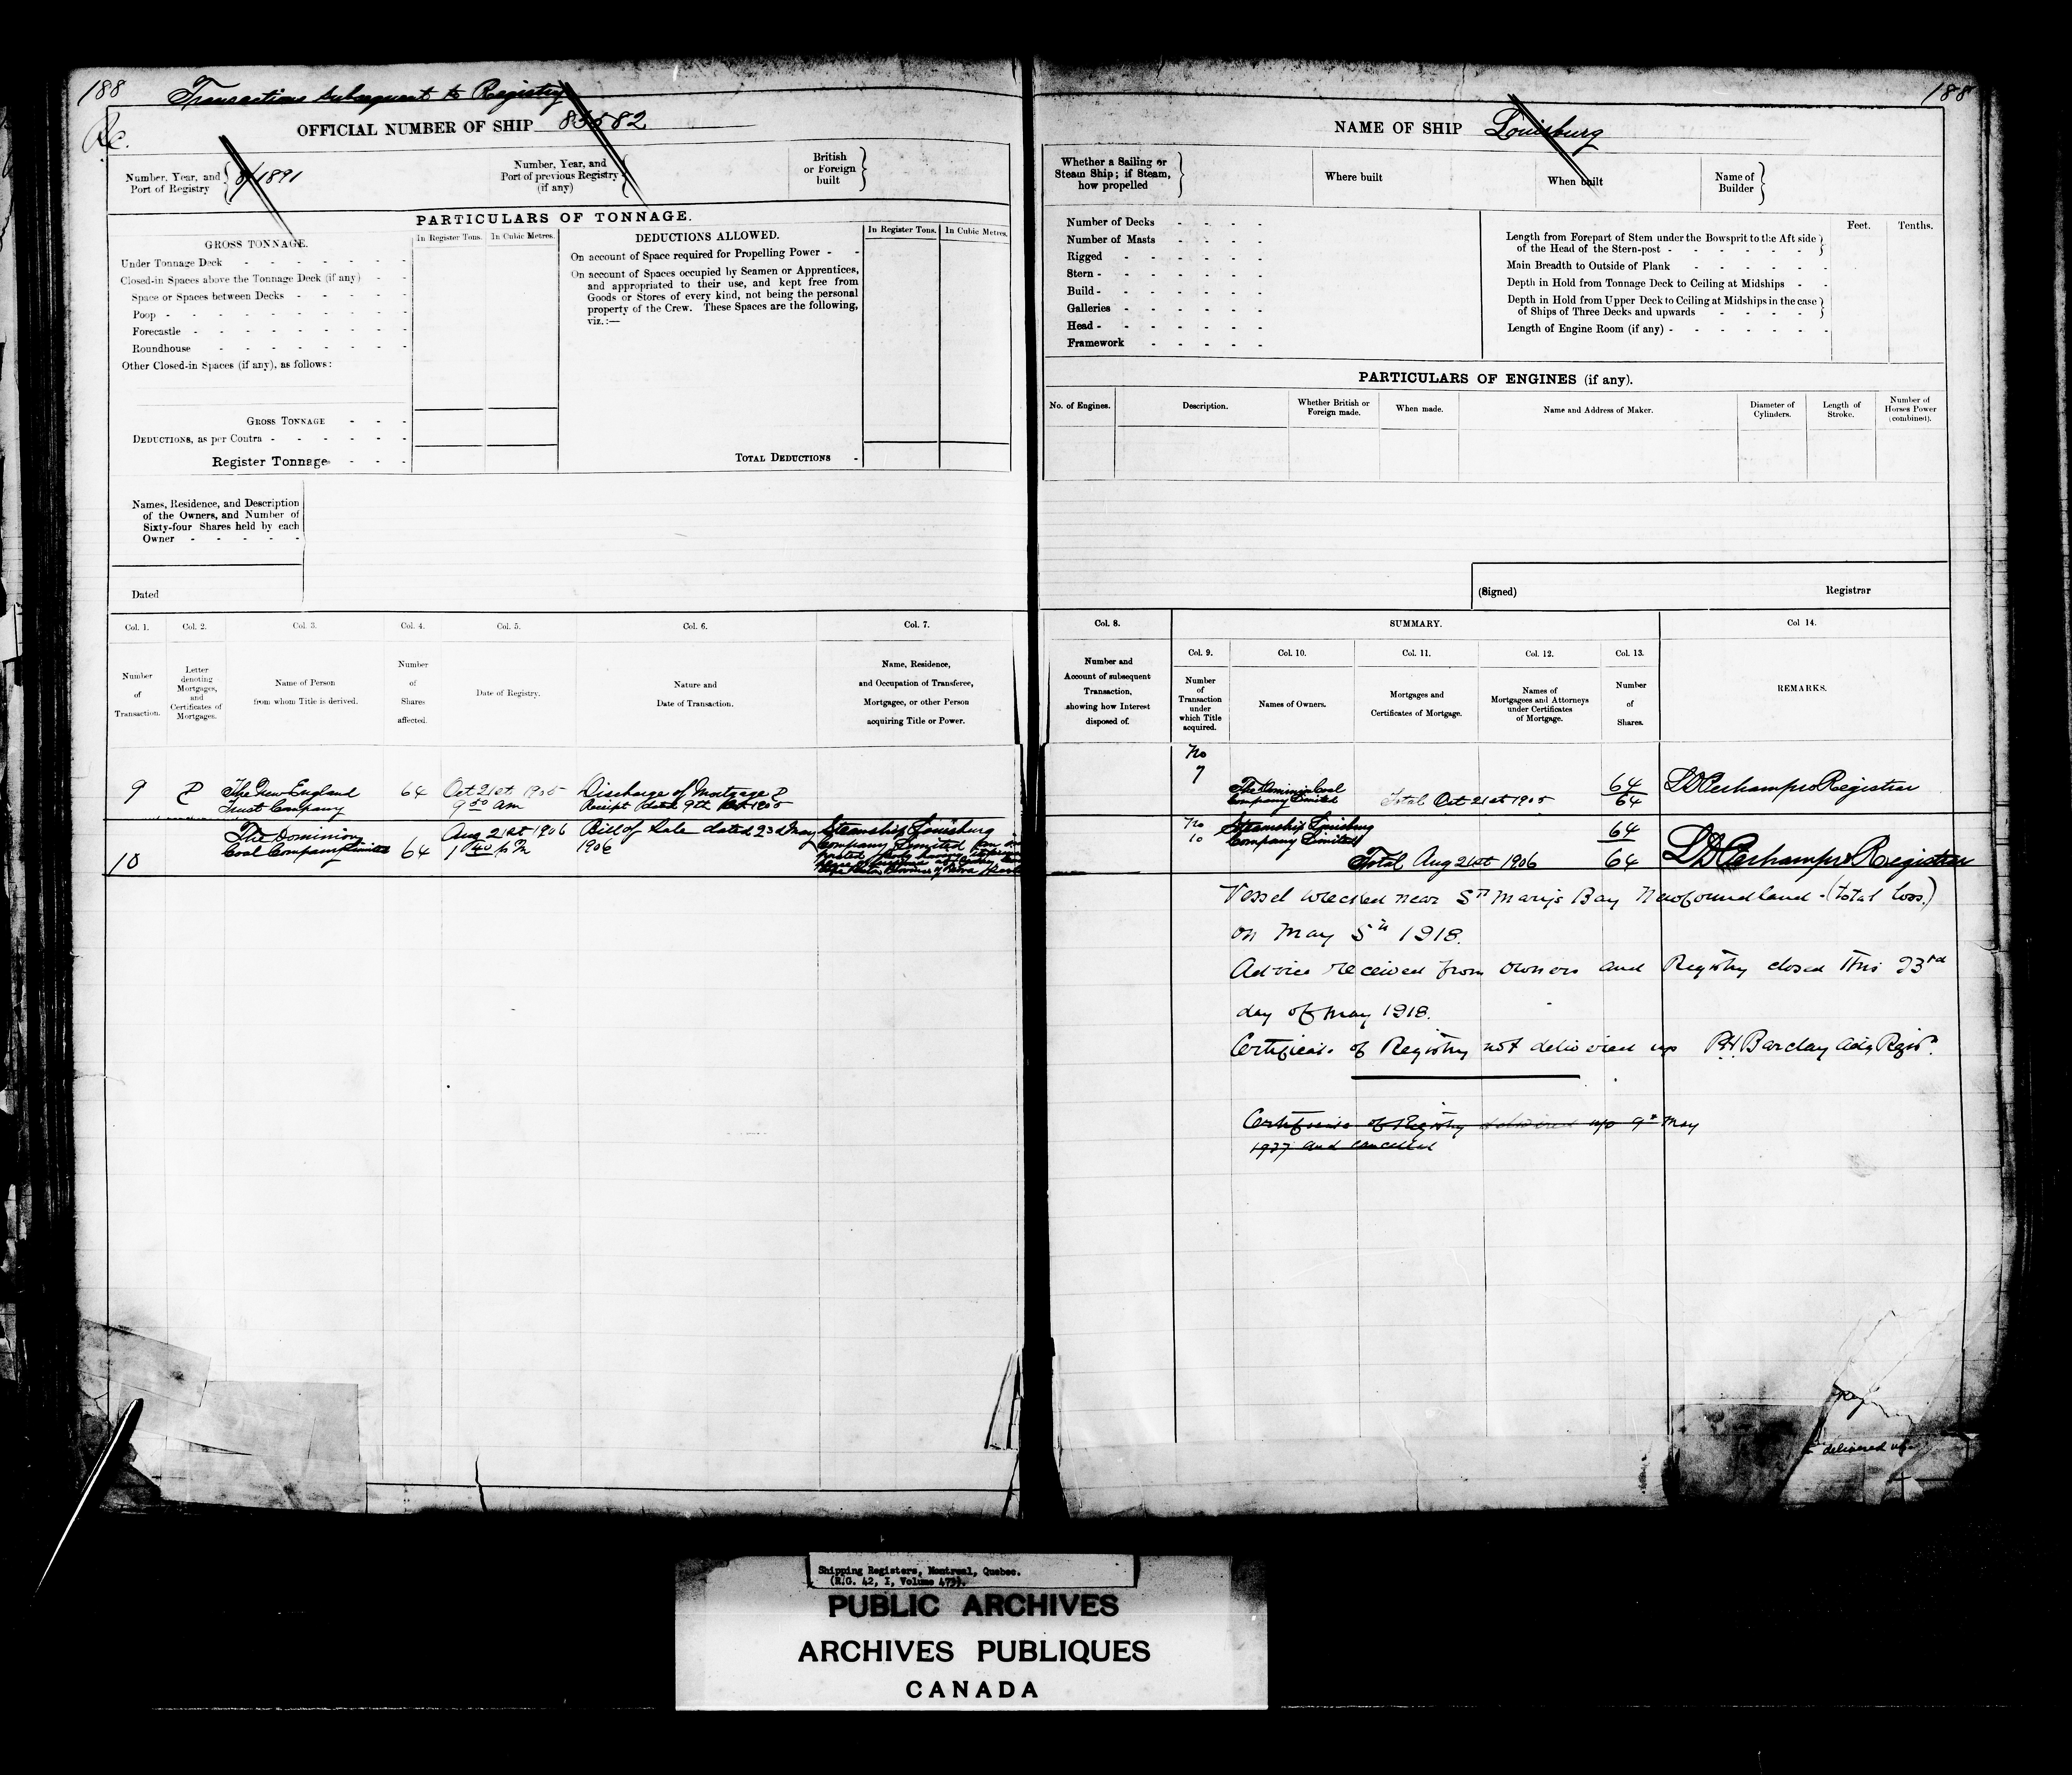 188
Transactions subsequent to Registry
188
Rc.
OFFICIAL NUMBER OF SHIP 85582
NAME OF SHIP Louisburg
Number, Year, and Port of Registry
8/1891
Number, Year, and Port of previous Registry (if any)
British or Foreign built
Whether a Sailing or Steam Ship; if Steam, how propelled
Where built
When built
Name of Builder
PARTICULARS OF TONNAGE.
GROSS TONNAGE.
In Register Tons.
In Cubic Metres.
Under Tonnage Deck
Closed-in Spaces above the Tonnage Deck (if any)
Space or Spaces between Decks
Poop
Forecastle
Roundhouse
Other Closed-in Spaces (if any), as follows:
GROSS TONNAGE
DEDUCTIONS, as per Contra
Register Tonnage
DEDUCTIONS ALLOWED.
In Register Tons.
In Cubic Metres.
On account of Space required for Propelling Power
On account of Spaces occupied by Seamen or Apprentices,
and appropriated to their use, and kept free from
Goods or Stores of every kind, not being the personal
property of the Crew. These Spaces are the following,
viz.:—
TOTAL DEDUCTIONS
Number of Decks
Number of Masts
Rigged
Stern
Build
Galleries
Head
Framework
Feet.
Tenths.
Length from Forepart of Stem under the Bowsprit to the Aft side
of the Head of the Stern-post
Main Breadth to Outside of Plank
Depth in Hold from Tonnage Deck to Ceiling at Midships
Depth in Hold from Upper Deck to Ceiling at Midships in the case
of Ships of Three Decks and upwards
Length of Engine Room (if any)
PARTICULARS OF ENGINES (if any).
No. of Engines.
Description.
Whether British or Foreign made.
When made.
Name and Address of Maker.
Diameter of Cylinders.
Length of Stroke.
Number of Horses Power (combined).
Names, Residence, and Description
of the Owners, and Number of
Sixty-four Shares held by each
Owner
Dated
(Signed)
Registrar
Col. 1.
Col. 2.
Col. 3.
Col. 4.
Col. 5.
Col. 6.
Col. 7.
Col. 8.
SUMMARY.
Col 14.
Col. 9.
Col. 10.
Col. 11.
Col. 12.
Col. 13.
Number of Transaction.
Letter denoting Mortgages, and Certificates of Mortgages.
Name of Person from whom Title is derived.
Number of Shares affected.
Date of Registry.
Nature and Date of Transaction.
Name, Residence, and Occupation of Transferee, Mortgagee, or other Person acquiring Title or Power.
Number and Account of subsequent Transaction, showing how Interest disposed of.
Number of Transaction under which Title acquired.
Names of Owners.
Mortgages and Certificates of Mortgage.
Names of Mortgagees and Attorneys under Certificates of Mortgage.
Number of Shares.
REMARKS.
9
The New England
Trust Company
64
Oct 21st 1905
9 50 am
Discharge of Mortgage
Receipt dated 9th 1905
No
7
The Dominion Coal
Company Limited
Total Oct 21st 1905
64
64
Registrar
10
The Dominion
Coal Company Limited
64
Aug 21st 1906
1 40 p m
Bill of Sale dated 23d May
1906
Steamship Louisburg
Company Limited
No
10
Steamship Louisburg
Company Limited
Total Aug 21st 1906
64
64
Registrar
Vessel wrecked near St Marys Bay Newfoundland - (total loss.)
on May 5th 1918.
Advice received from owners and Registry closed this 23rd
day of May 1918.
Certificate of Registry not delivered up Barclay Regisr.
Certificate of Registry delivered up 9th May
1927 and cancelled
delivered up
Shipping Registers, Montreal, Quebec.
(R.G. 42, I, Volume 475).
PUBLIC ARCHIVES
ARCHIVES PUBLIQUES
CANADA